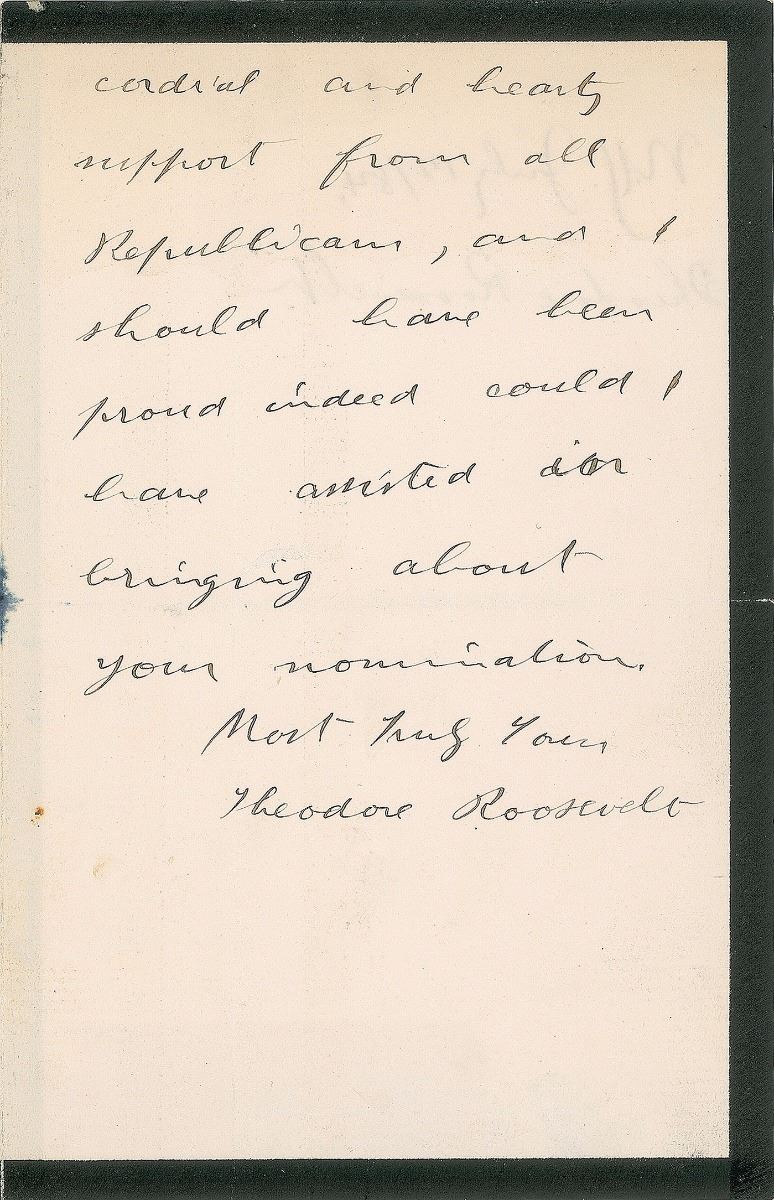 cordial and hearty
support from all
Republicans, and I
should have been
proud indeed could I
have assisted in
bringing about
your nomination.
Most Truly Yours
Theodore Roosevelt